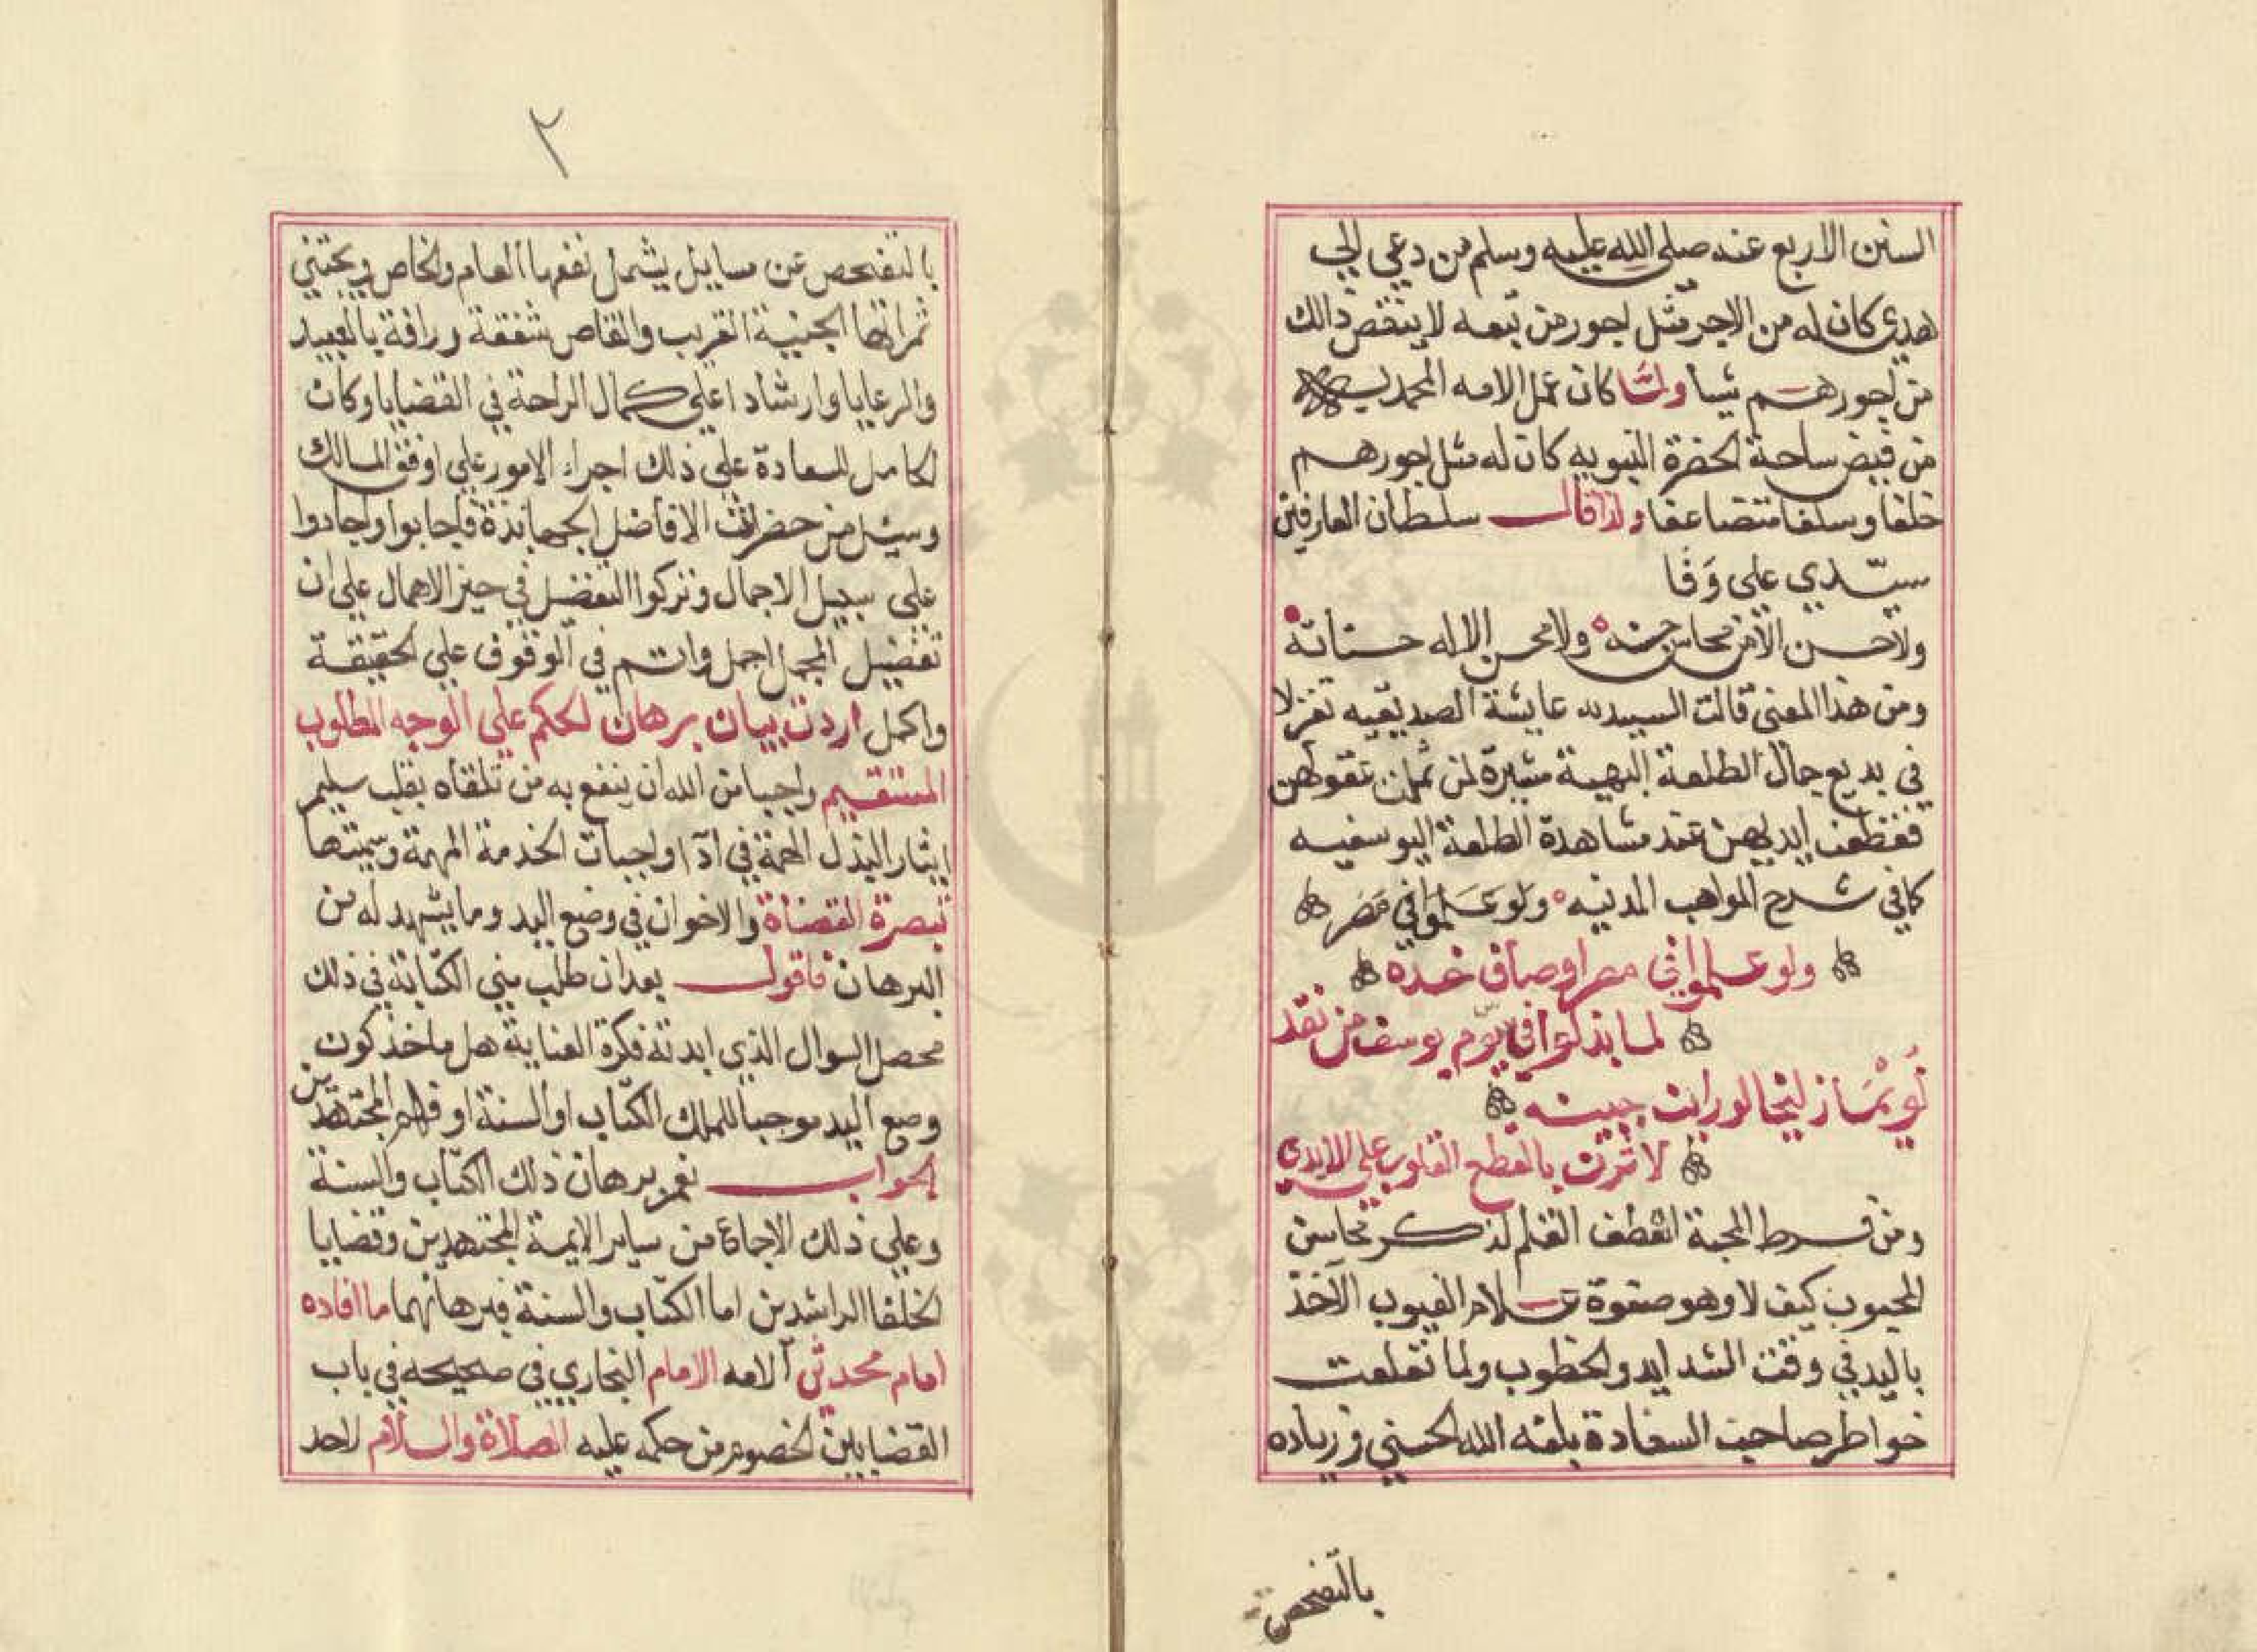 السنن الاربع عنه صلى الله عليه وسلم من دعي الي
هدي كان له من الاجر مثل اجور من تبعه لا ينقص ذالك
من اجورهم شيا ولما كان عمل الامه المحمديه
من فيض ساحة الحضرة النبويه كان له مثل اجورهم
خلفا وسلفا متضاعفا ولذا قال سلطان العارفين
سيّدي على وَفَا
ولا حسن الا من محاسن حسنه ولا محسن الا له حسناته
ومن هذا المعنى قالت السيده عايشة الصديقيه تغزلا
في بديع جمال الطلعة البهية مشيرة لمن
فقطعن ايديهن عند مشاهدة الطلعة اليوسفيه
كما في شرح المواهب المدنيه ولو علموا في مصر
ولو علموا في مصر اوصاف خده
لما بذلوا في سوم يوسف من نقد
لَو يْمَا زليخا لو راين جبينه
لاثرن بالقطع القلوب على الايدي
ومن فرط المحبة انقطف القلم لذكر محاسن
المحبوب كيف لا وهو صفوة علام الغيوب الآخذ
باليد في وقت الشدايد والخطوب ولما تعلقت
خواطر صاحب السعادة بلغه الله الحسني وزياده
بالتفحص
٢
بالتفحص عن مسايل يشمل نفعها العام والخاص ويجتني
ثمراتها الجنية القريب والقاص شفقة ورافة بالعبيد
والرعايا وارشادا على كمال الراحة في القضايا وكان
الحامل للسعادة علي ذلك اجراء الامور علي اوفق المسالك
وسيل من حضرات الافاضل الجهابذة فاجابوا واجادوا
على سبيل الاجمال وتركوا التفضيل في حيز الاهمال علي ان
تفضيل المجمل اجمل واتم في الوقوف علي الحقيقة
واكمل اردت بيان برهان الحكم على الوجه المطلوب
المستقيم راجيا من الله ان ينفع به من تلقاه بقلب سليم
ايثارا لبذل الهمة في اداَ واجبات الخدمة المهمة وسميتها
تبصرة القضاة والاخوان في وضع اليد وما يشهد له من
البرهان فاقول بعد ان طلب مني الكتابة في ذلك
محصل السوال الذي ابدته فكرة العناية هل ماخذ كون
وضع اليد موجبا للملك الكتاب او السنة او فهم المجتهدين
الجواب نعم برهان ذلك الكتاب والسنة
وعلي ذلك الاجماع من ساير الايمة المجتهدين وقضايا
الخلفا الراشدين اما الكتاب والسنة فبرهانهما ما افاده
امام محدثي الامه الامام البخاري في صحيحه في باب
القضايا بين الخصوم من حكمه عليه الصلاة والسلام لاحد